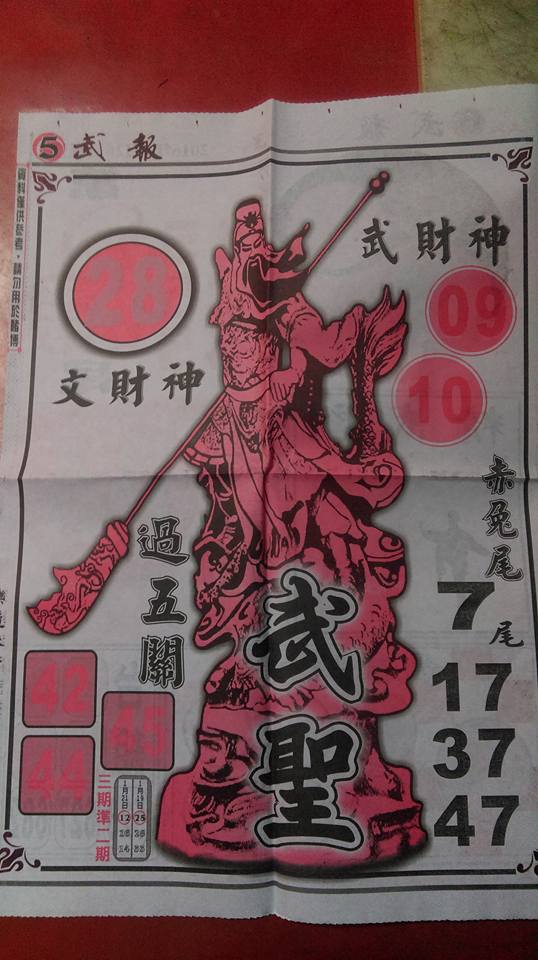 5 武報
資料僅供參考，請勿用於賭博
28
文財神
武財神
09
10
赤兔尾
7尾
17
37
47
過五關
武聖
42
45
44
三期準二期
12 25
16 26
14 33